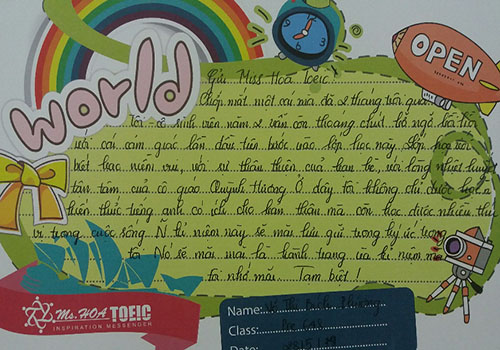 World
OPEN
Gửi Miss Hoa Toeic!
Chớp mắt một cái mà đã 2 tháng trôi qua
Tôi - cô sinh viên năm 2 vẫn còn thoáng chút bỡ ngỡ bồi hồi
với cái cảm giác lần đầu tiên bước vào lớp học này. Lớp học tôi
biết bao niềm vui, với sự thân thiện của bạn bè, với lòng nhiệt huyết
tận tâm của cô giáo Quỳnh Hương. Ở đây tôi không chỉ được học
kiến thức tiếng anh có ích cho bản thân mà còn học được nhiều thứ
vị trong cuộc sống. N kỉ niệm này sẽ mãi lưu giữ trong ký ức trong
tôi. Nó sẽ mãi mãi là hành trang và kỉ niệm mà
tôi nhớ mãi. Tạm biệt!
Ms. HOA TOEIC
INSPIRATION MESSENGER
Name: Thị Bích Phương
Class: Pre
Date: